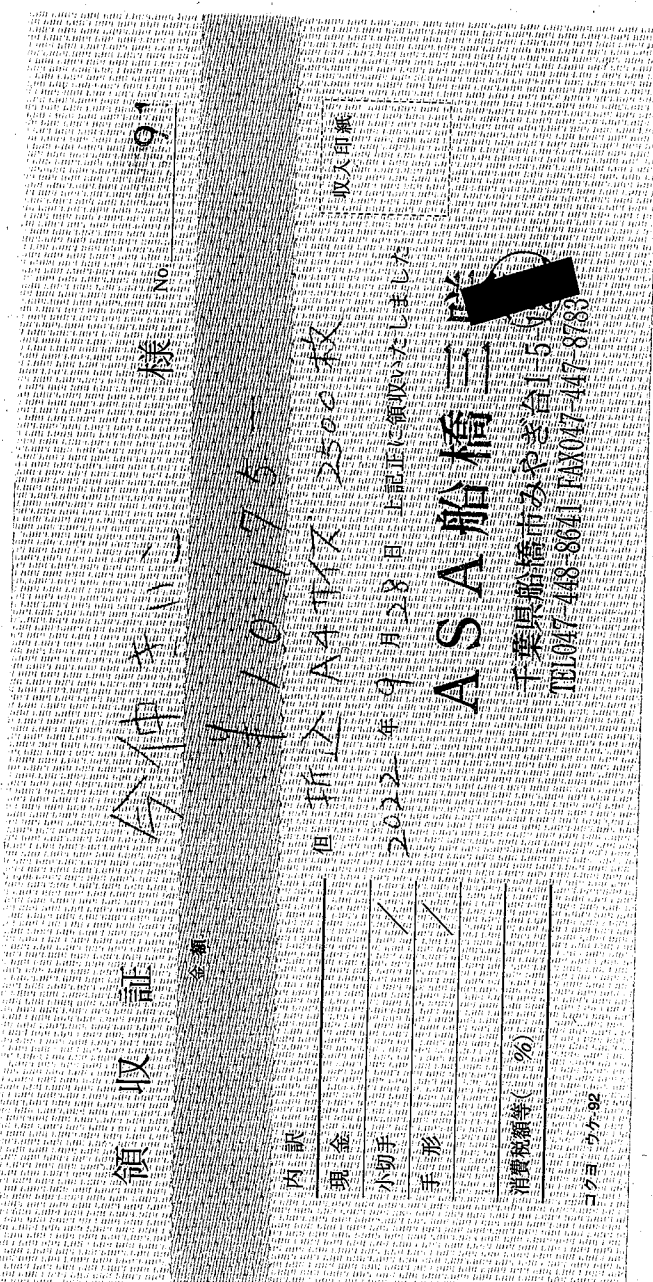 領収証 今仲きいこ 様 No. 91
金額 ¥10,175-
但 折込 A4サイズ 2500枚
収入印紙
2022年9月28日 上記正に領収いたしました
内訳
現金
小切手 /
手形 /
消費税額等( %)
ASA船橋三咲
千葉県船橋市みやぎ台1-5
TEL047-448-8641 FAX047-447-8783
コクヨ ウケ-92